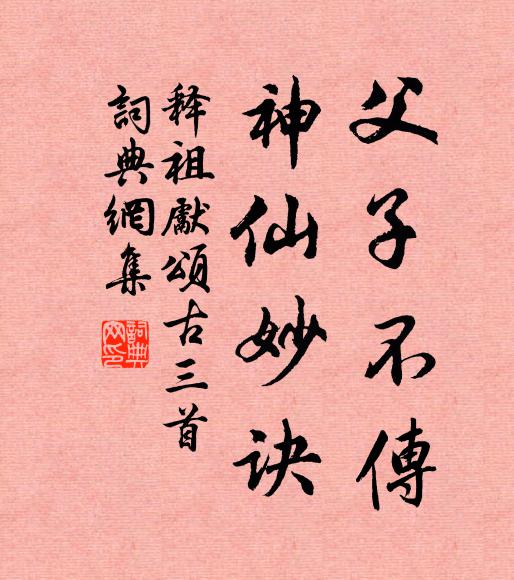 父子不傳
神仙妙訣
釋祖獻頌古三首
詞典網集
詞典網印